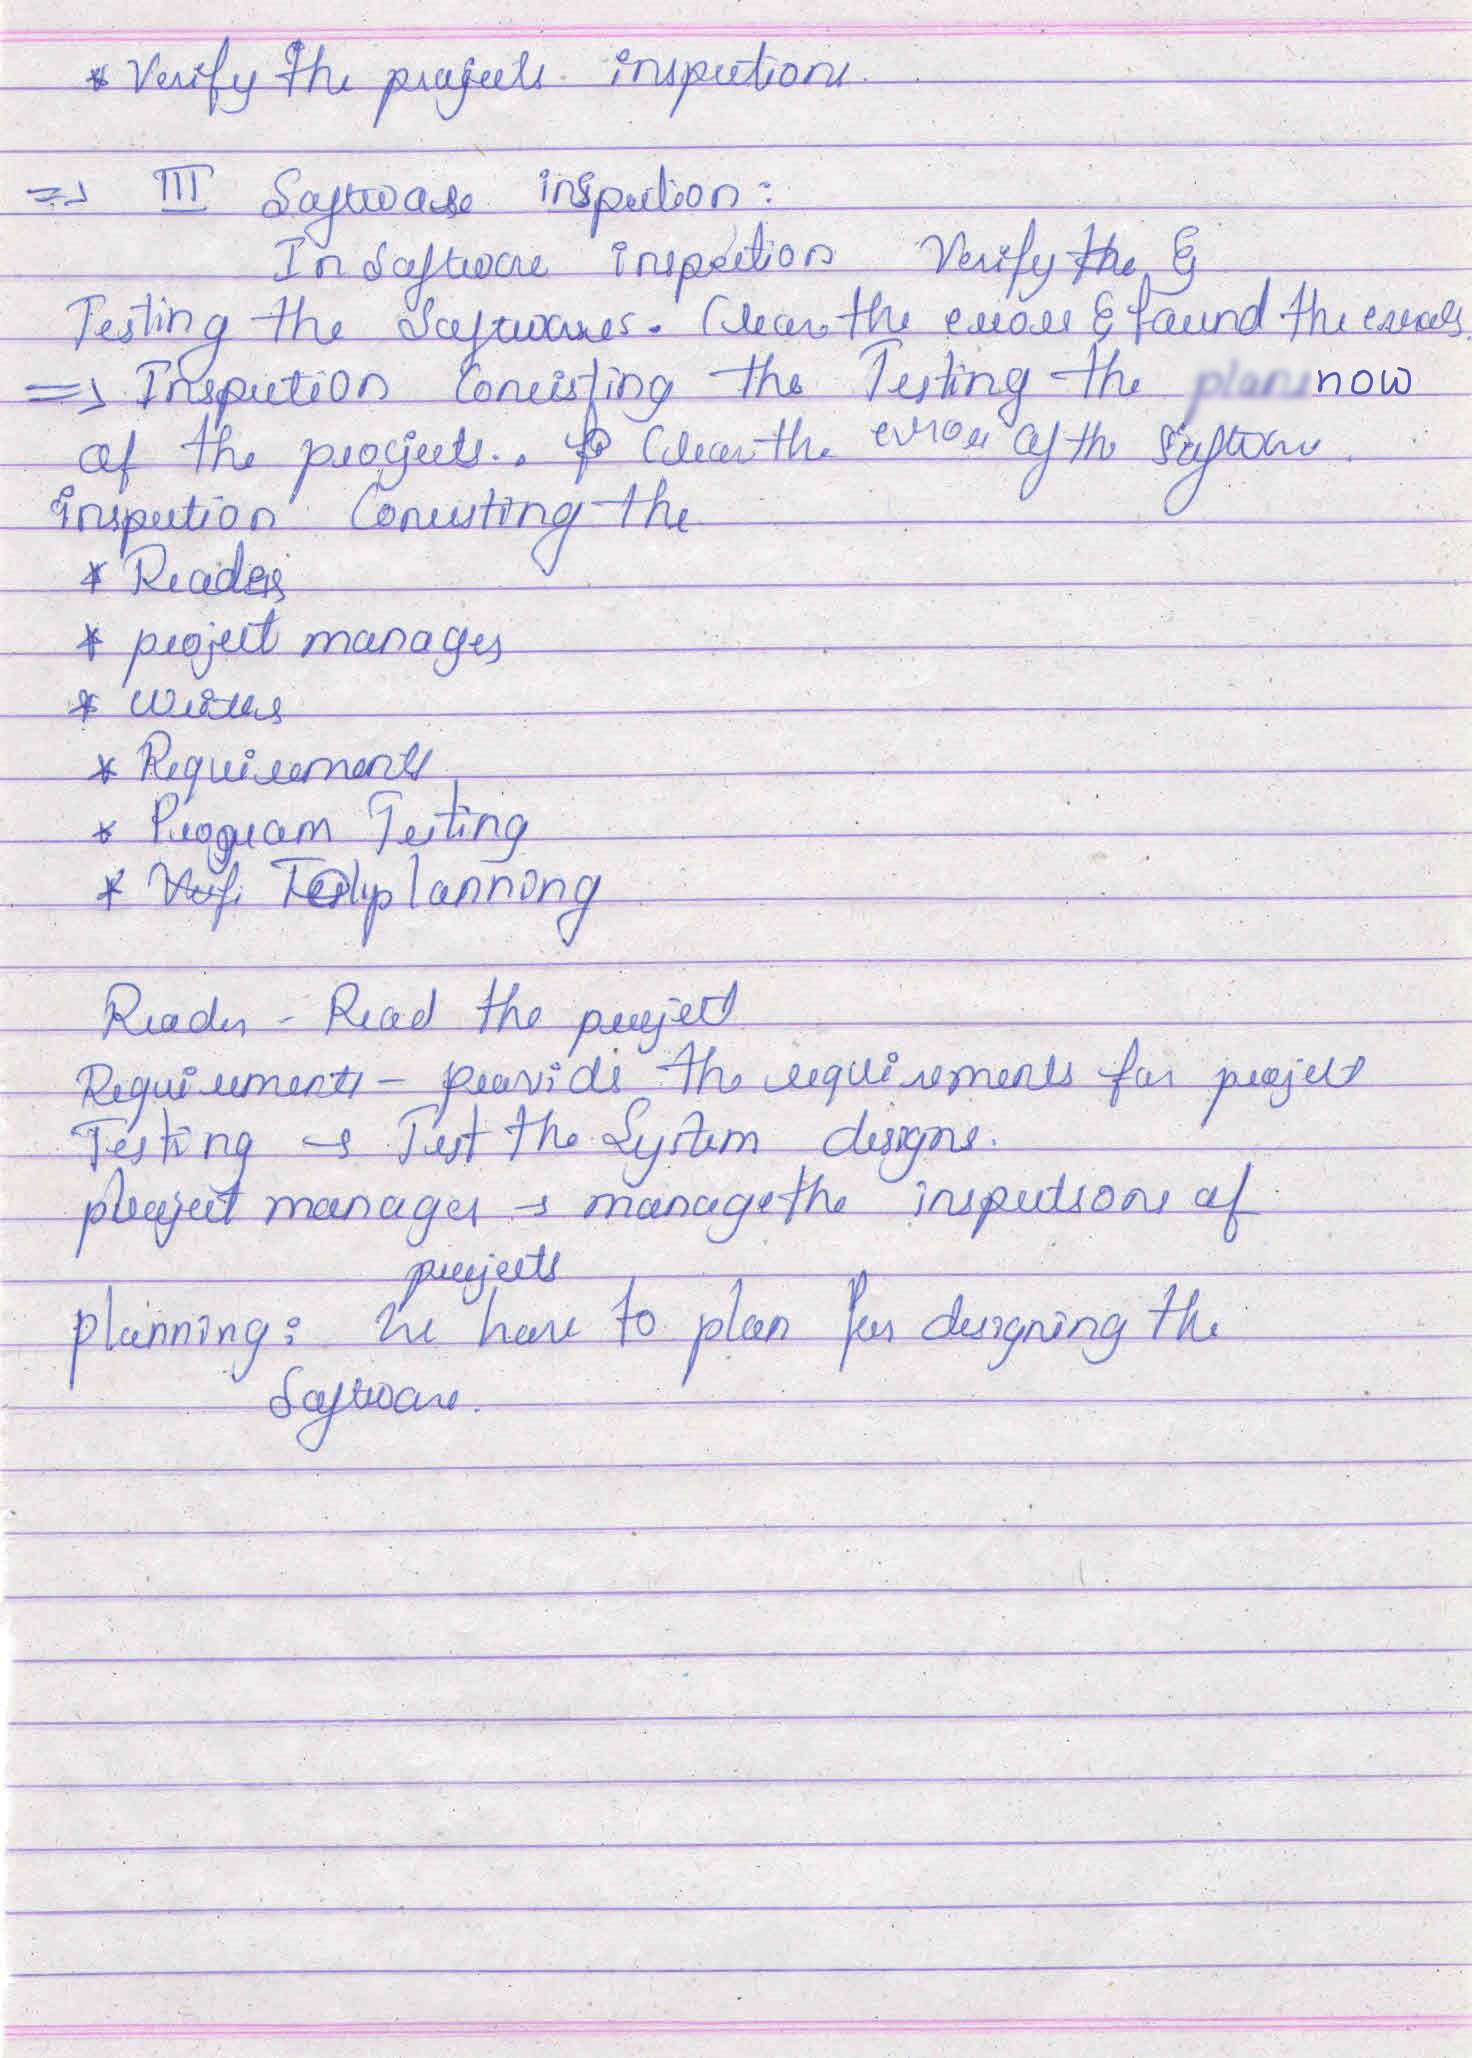 * Verify the projects inspections.
=> III Software inspection:
In Software inspection Verify the &
Testing the Softwares. Clear the errors & found the errors.
=> Inspection Consisting the Testing the now
of the projects.. Clear the error of the Software.
inspection Consisting the
* Readers
* project manages
* writers
* Requirements
* Program Testing
* planning
Reader - Read the project
Requirements - provide the requirements for project
Testing → Test the System designs.
project manager → manage the inspections of
projects
planning: we have to plan for designing the
Software.